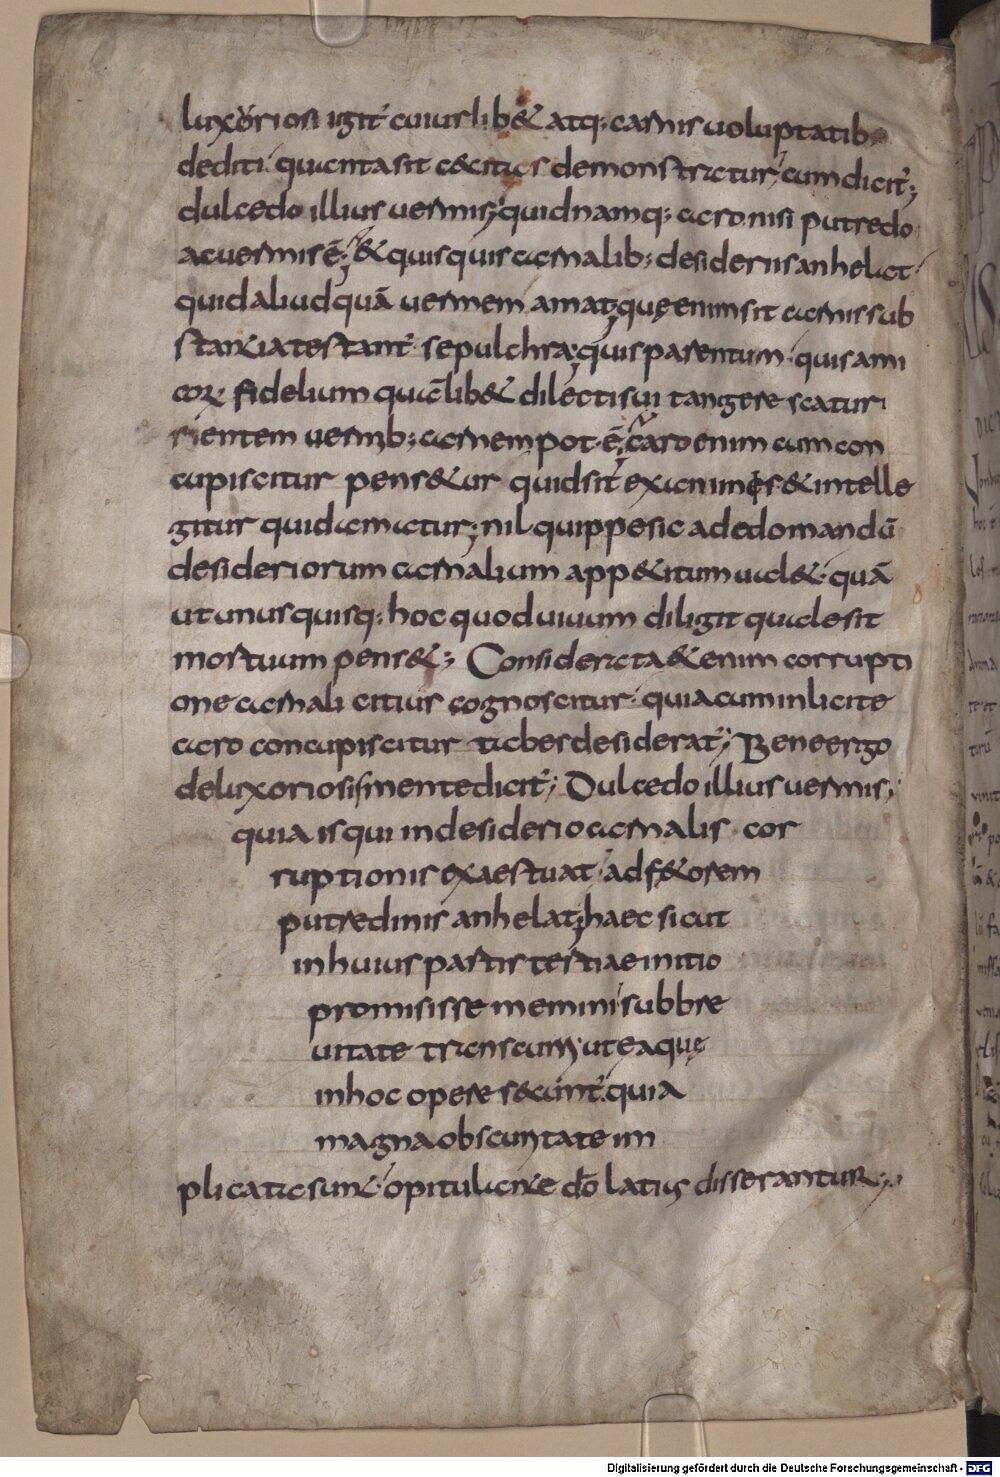 luxoriosi igit cuiuslib& atq; carnis uoluptatib;
dediti quanta sit caecitas demonstratur, cum dicit';
dulcedo illius uermis; quid namq; caro nisi putredo
ac uermis ē; & quisquis carnalib; desideriis anhelat
quid aliud quā uermem amat; quę enim sit carnis sub
stantia testant' sepulchra; quis parentum quis ami
corꝝ fidelium quālib& dilecti sui tangere scaturi
rientem uermib; carnem pot ē; caro enim cum con
cupiscitur pens&ur quid sit exanimis & intelle
gitur quid amatur; nil quippe sic ad edomandū
desideriorum carnalium app&itum ual& quā
ut unusquisq; hoc quod uiuum diligit quale sit
mortuum pens&; Considerata &enim corrupti
one carnali citius cognoscitur quia cum inlicite
caro concupiscitur tabes desiderat'; Bene ergo
de luxoriosi mente dicit'; Dulcedo illius uermis;
quia is qui in desiderio carnalis cor
ruptionis exaestuat ad f&orem
putredinis anhelat; haec sicut
in huius partis tertiae initio
promisisse memini sub bre
uitate transcurri ut ea quę
in hoc opere secunt' quia
magna obscuritate im
plicata sunt opitulante dō latius disserantur;
Digitalisierung gefördert durch die Deutsche Forschungsgemeinschaft - DFG